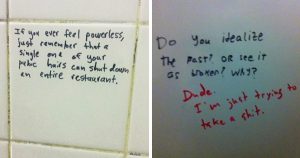 If you ever feel powerless,
just remember that a
single one of your
pubic hairs can shut down
an entire restaurant.
Do you idealize
the past? OR see it
as broken? Why?
Dude.
I'm just trying to
take a shit.